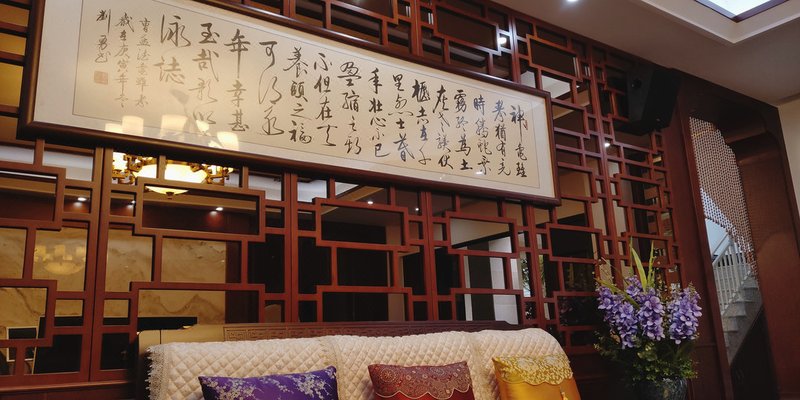 神龜雖
壽猶有竟
時騰蛇乘
霧終為土
灰老驥伏
櫪志在千
里烈士暮
年壯心不已
盈縮之期
不但在天
養頤之福
可得永
年幸甚
至哉歌以
詠誌
曹孟德龜雖壽
歲在庚寅年冬